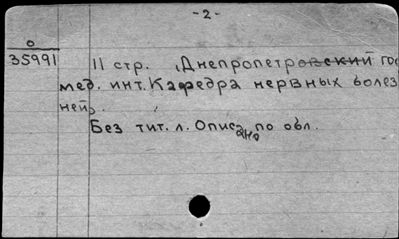 -2-
0
35991
11 стр. Днепропетровский гос
мед. инт. Кафедра нервных болез
ней.
Без тит. л. Описано по обл.